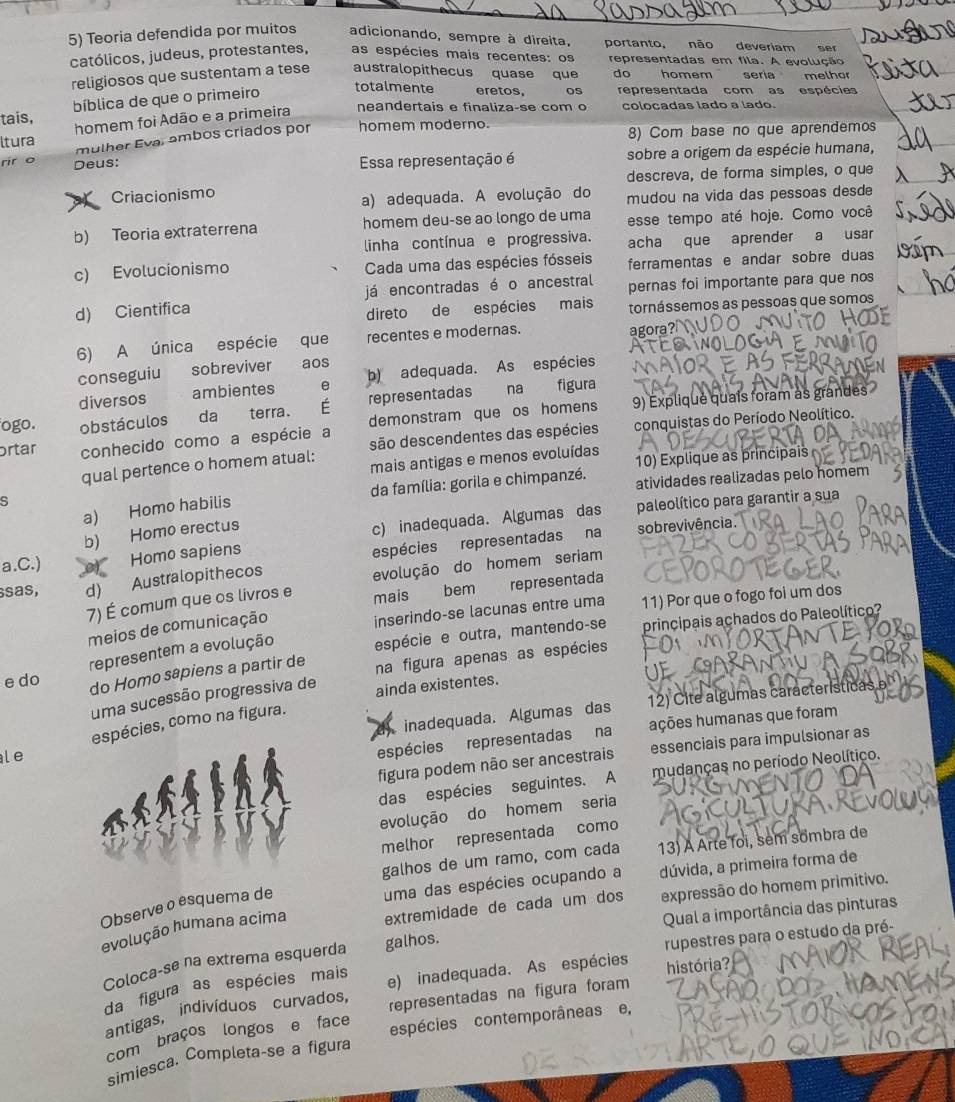 tais,
ltura
rir o
ogo.
ortar
s
a.C.)
ssas,
e do
al e
5) Teoria defendida por muitos
católicos, judeus, protestantes,
religiosos que sustentam a tese
bíblica de que o primeiro
homem foi Adão e a primeira
mulher Eva, ambos criados por
Deus:
Criacionismo
b) Teoria extraterrena
c) Evolucionismo
d) Cientifica
6) A única espécie que
conseguiu sobreviver aos
diversos ambientes e
obstáculos da terra. É
conhecido como a espécie a
qual pertence o homem atual:
a) Homo habilis
b) Homo erectus
c) Homo sapiens
d) Australopithecos
7) É comum que os livros e
meios de comunicação
representem a evolução
do Homo sapiens a partir de
uma sucessão progressiva de
espécies, como na figura.
Observe o esquema de
evolução humana acima
Coloca-se na extrema esquerda
da figura as espécies mais
antigas, indivíduos curvados,
com braços longos e face
simiesca. Completa-se a figura
adicionando, sempre à direita,
as espécies mais recentes: os
australopithecus quase que
totalmente eretos, os
neandertais e finaliza-se com o
homem moderno.
Essa representação é
a) adequada. A evolução do
homem deu-se ao longo de uma
linha contínua e progressiva.
Cada uma das espécies fósseis
já encontradas é o ancestral
direto de espécies mais
recentes e modernas.
b) adequada. As espécies
representadas na figura
demonstram que os homens
são descendentes das espécies
mais antigas e menos evoluídas
da família: gorila e chimpanzé.
c) inadequada. Algumas das
espécies representadas na
evolução do homem seriam
mais bem representada
inserindo-se lacunas entre uma
espécie e outra, mantendo-se
na figura apenas as espécies
ainda existentes.
inadequada. Algumas das
espécies representadas na
figura podem não ser ancestrais
das espécies seguintes. A
evolução do homem seria
melhor representada como
galhos de um ramo, com cada
uma das espécies ocupando a
extremidade de cada um dos
galhos.
e) inadequada. As espécies
representadas na figura foram
espécies contemporâneas e,
portanto, não deveriam ser
representadas em fila. A evolução
do homem seria melhor
representada com as espécies
colocadas lado a lado.
8) Com base no que aprendemos
sobre a origem da espécie humana,
descreva, de forma simples, o que
mudou na vida das pessoas desde
esse tempo até hoje. Como você
acha que aprender a usar
ferramentas e andar sobre duas
pernas foi importante para que nos
tornássemos as pessoas que somos
agora? MUDO MUiTO HOJE
ATEQiNOLOGiA E MUiTO
MAIOR E AS FERRAMEN
TAS MAiS AVANCADAS
9) Explique quais foram as grandes
conquistas do Período Neolítico.
A DESCUBERTA DA ARMAS
DE PEDARA
10) Explique as principais
atividades realizadas pelo homem
paleolítico para garantir a sua
sobrevivência. TiRA LAO PARA
FAZER COBERTAS PARA
CEPOROTEGER.
11) Por que o fogo foi um dos
principais achados do Paleolítico?
FOi iMPORTANTE PORQ
UE GARANTiU A SOBR
ViVENCiA DOS
12) Cite algumas características e
ações humanas que foram
essenciais para impulsionar as
mudanças no período Neolítico.
SURGiMENTO DA
AGiCULTURA. REVOLUÇ
NEOLiTiCA
13) A Arte foi, sem sombra de
dúvida, a primeira forma de
expressão do homem primitivo.
Qual a importância das pinturas
rupestres para o estudo da pré-
história? A MAiOR REAL
ZAÇÃO DOS HAMENS
PRE-HiSTORiCOS FOi
ARTE, O QUE iNDiCA